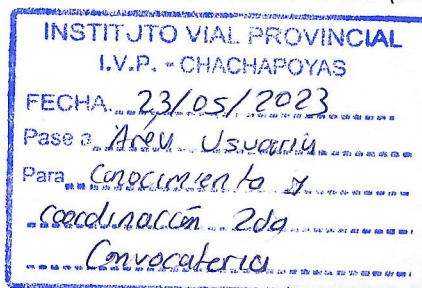 INSTITUTO VIAL PROVINCIAL
I.V.P. - CHACHAPOYAS
FECHA 23/05/2023
Pase a Area Usuaria
Para Conocimiento y
coordinación 2da
Convocatoria